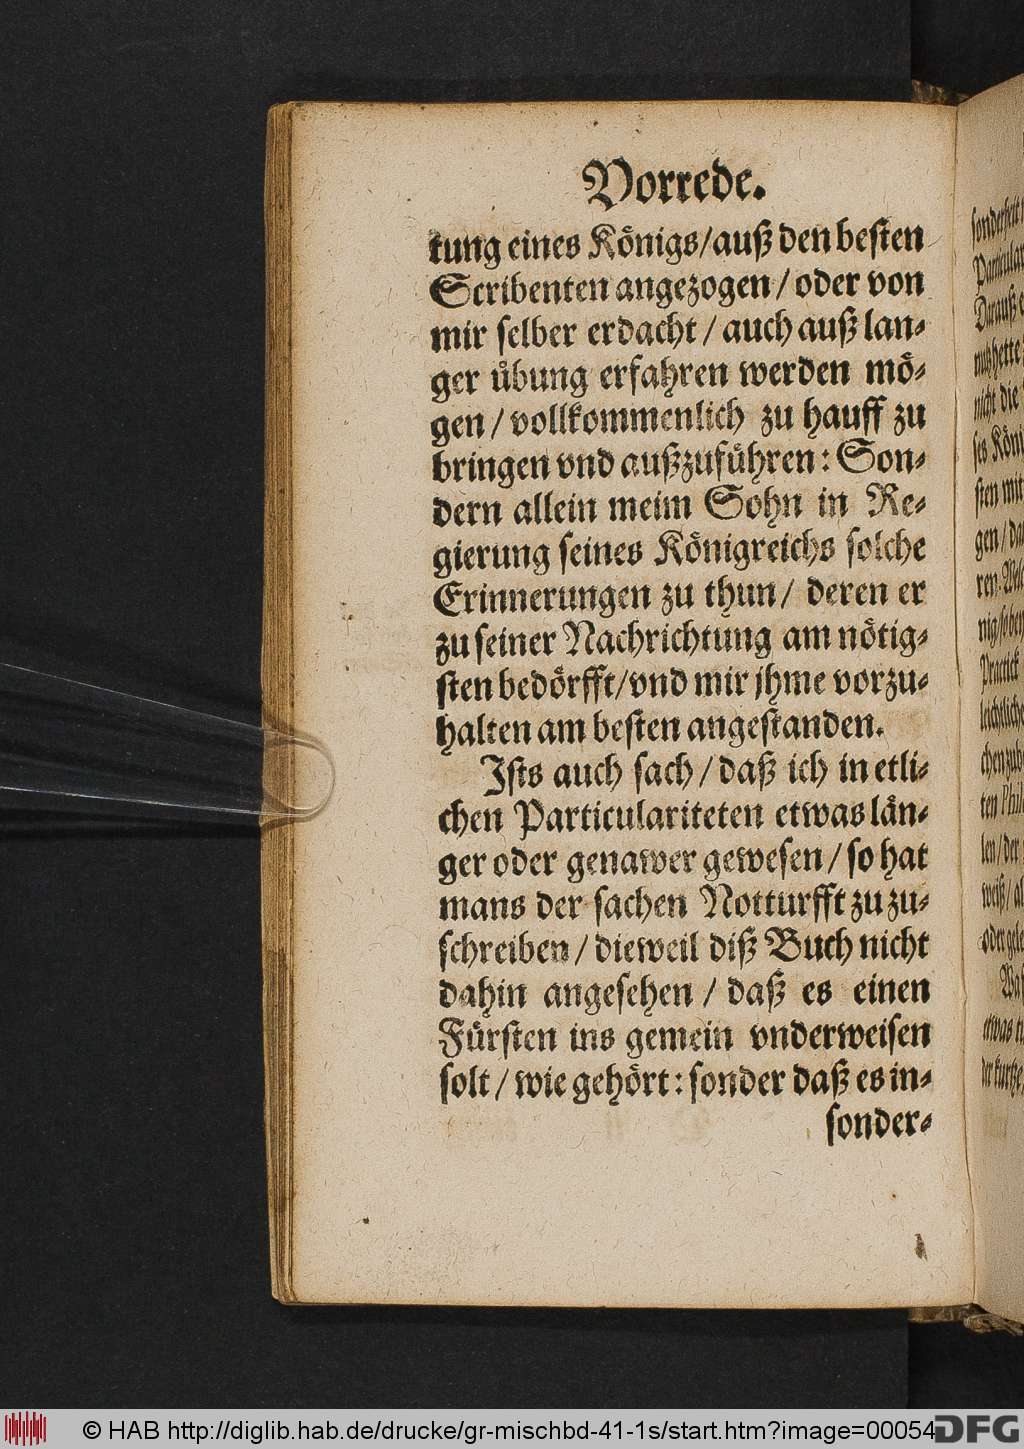 Vorrede.
tung eines Königs/auß den besten
Scribenten angezogen / oder von
mir selber erdacht / auch auß lan-
ger übung erfahren werden mö-
gen / vollkommenlich zu hauff zu
bringen vnd außzuführen: Son-
dern allein meim Sohn in Re-
gierung seines Königreichs solche
Erinnerungen zu thun / deren er
zu seiner Nachrichtung am nötig-
sten bedörfft/vnd mir jhme vorzu-
halten am besten angestanden.
Ists auch sach / daß ich in etli-
chen Particulariteten etwas län-
ger oder genawer gewesen / so hat
mans der sachen Notturfft zu zu-
schreiben / dieweil diß Buch nicht
dahin angesehen / daß es einen
Fürsten ins gemein vnderweisen
solt / wie gehört: sonder daß es in-
sonder-
sonderheit
Particular
Darauß
hette
nicht die
ses Köni
sten mit
gen / da
ren
nig/so
Practick
ten Phil
len / der
weiß / al
oder gele
etwas
der kurtze
© HAB http://diglib.hab.de/drucke/gr-mischbd-41-1s/start.htm?image=00054
DFG